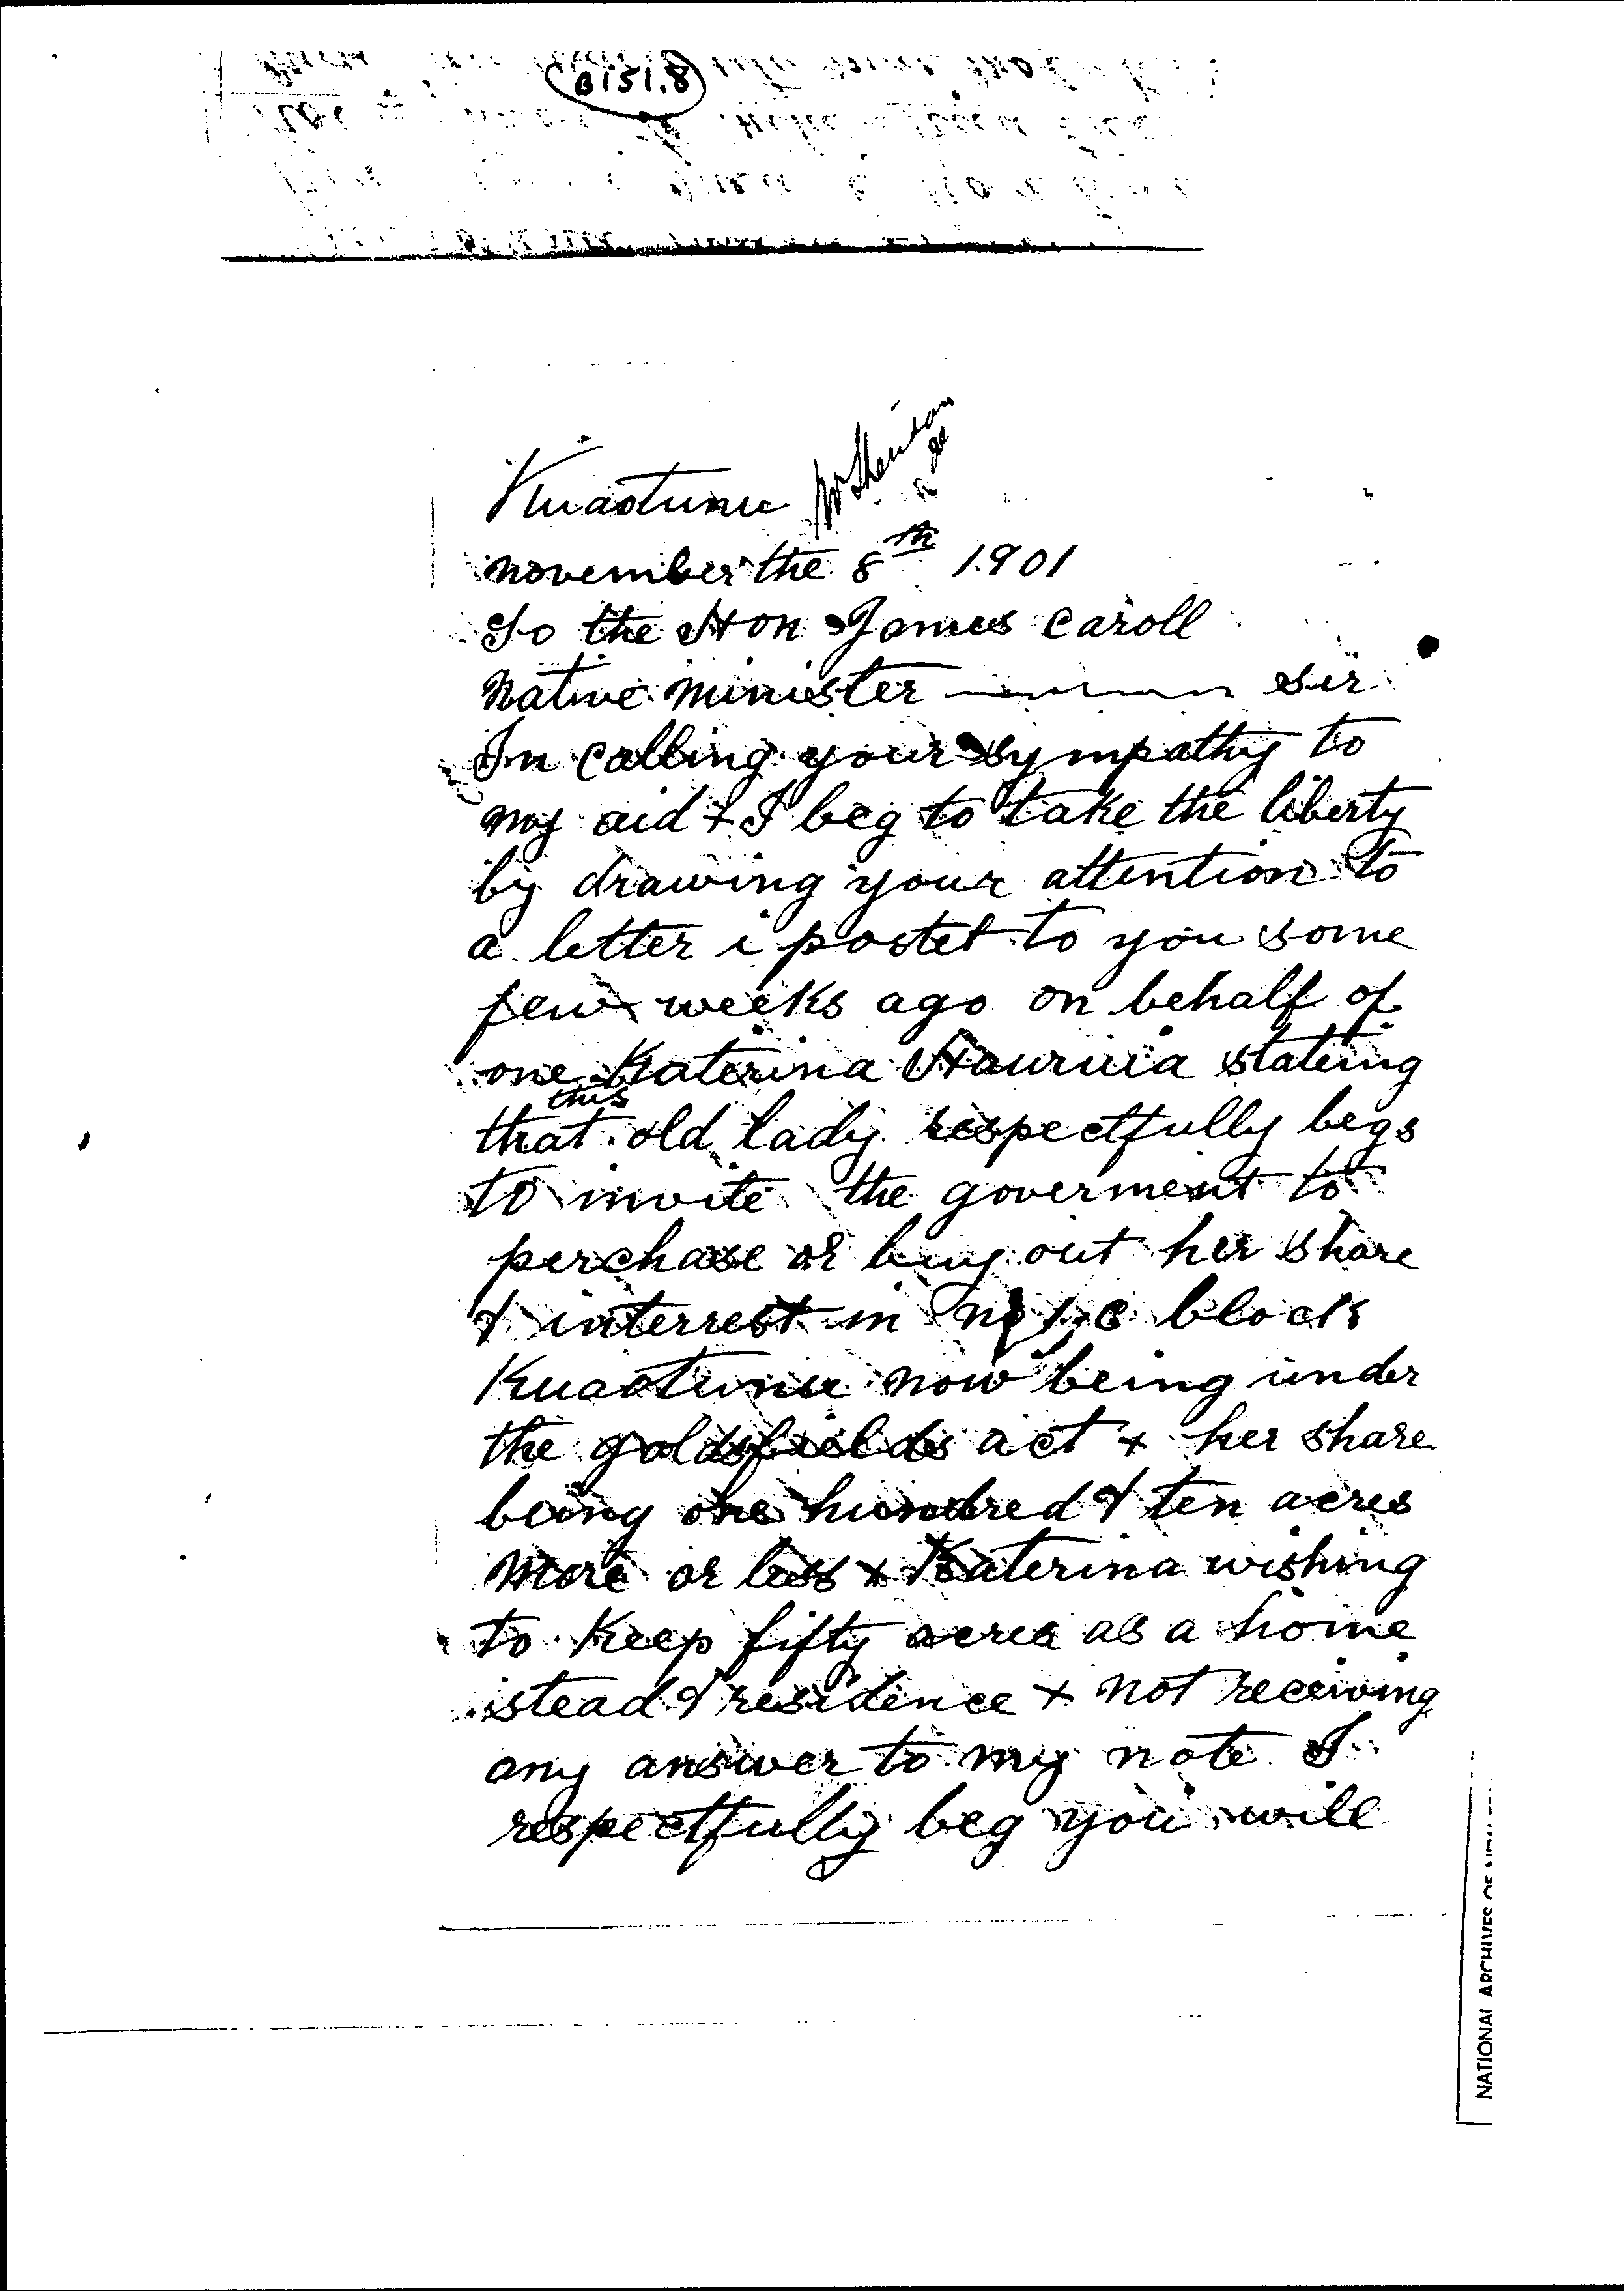 B151.8
Kuaotunu
november the 8th 1901
To the Hon James Caroll
Native minister sir
In calling your sympathy to
my aid + I beg to take the liberty
by drawing your attention to
a letter i postet to you some
few weeks ago on behalf of
one Katerina Hauruia stateing
this
that old lady respectfully begs
to invite the goverment to
perchase or buy out her share
& interrest in no 1 c block
Kuaotunu now being under
the goldsfields act + her share
being one hundred & ten acres
more or less + Katerina wishing
to keep fifty acres as a home
istead & residence + not receiving
any answer to my note I
respectfully beg you will
NATIONAL ARCHIVES OF